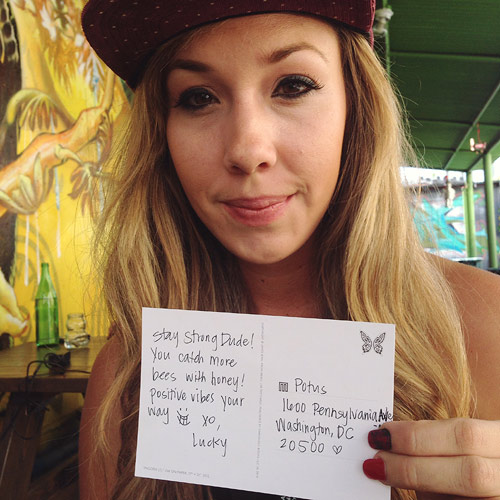 Stay Strong Dude!
You catch more
bees with honey!
Positive vibes your
way
xo,
Lucky
Potus
1600 Pennsylvania Ave
Washington, DC
20500